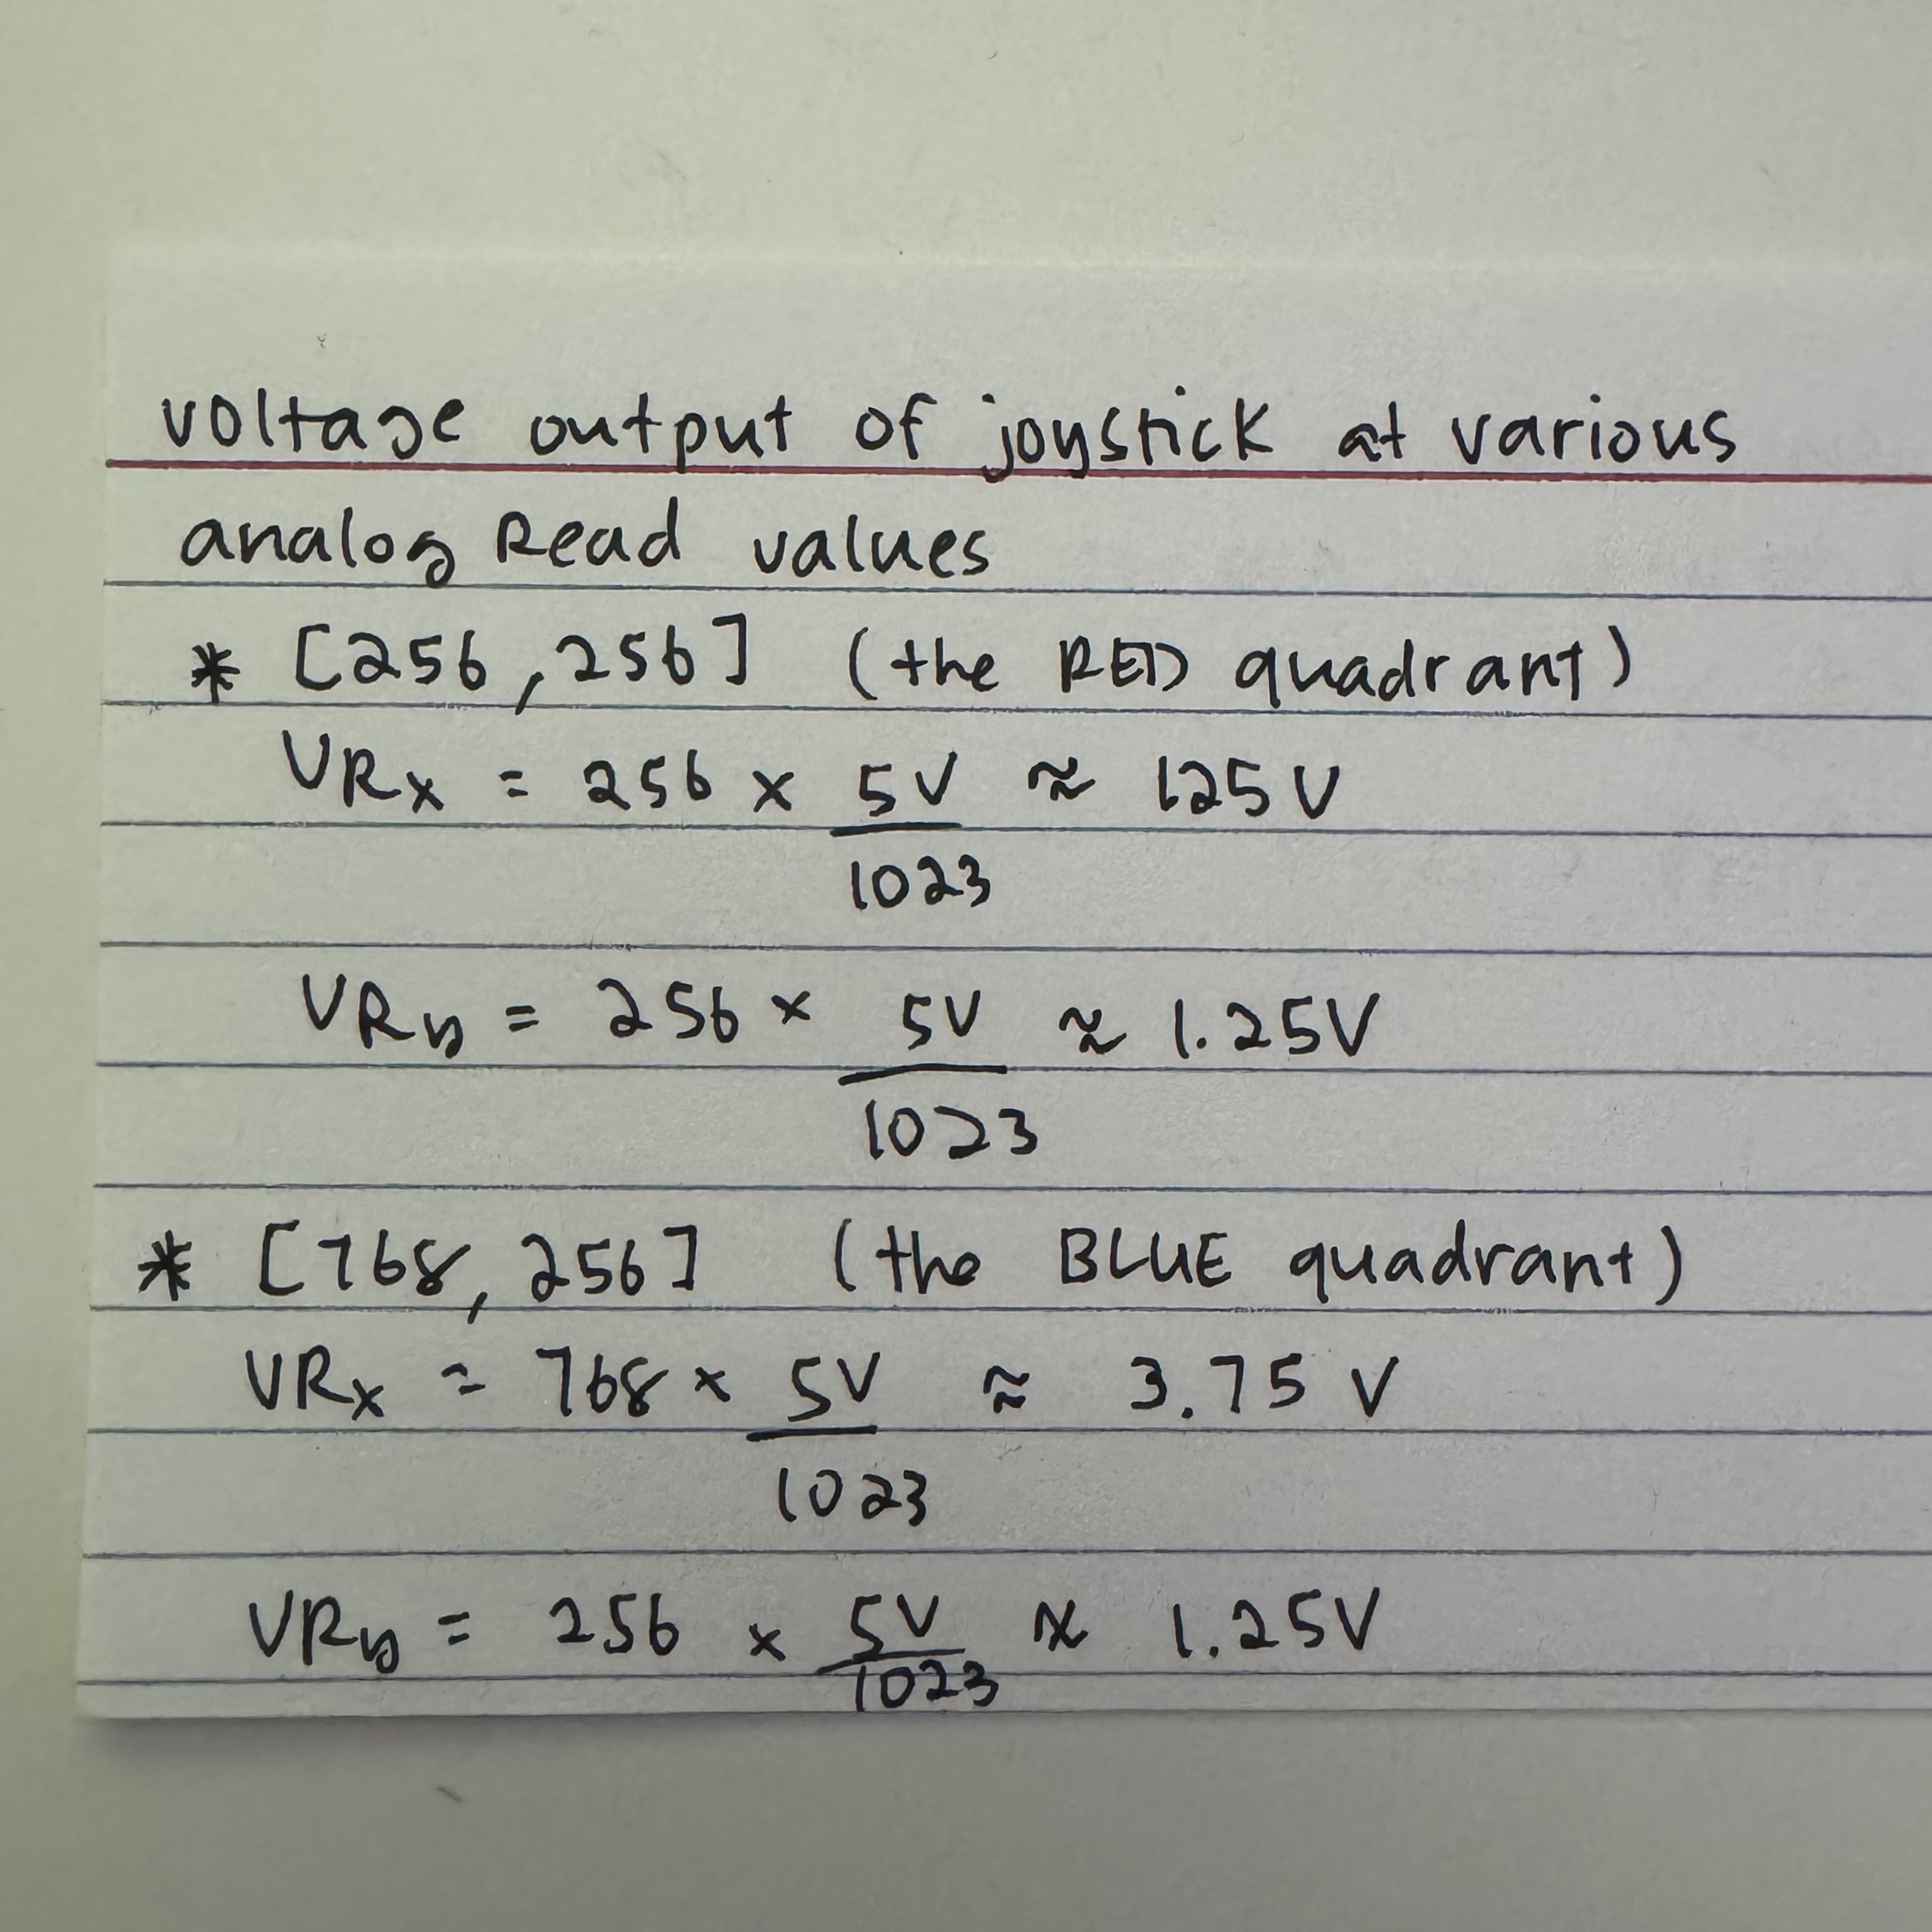 voltage output of joystick at various
analog Read values
* [256, 256] (the RED quadrant)
VRx = 256 x 5V ≈ 125 V
1023
VRy = 256 x 5V ≈ 1.25V
1023
* [768, 256] (the BLUE quadrant)
VRx = 768 x 5V ≈ 3.75 V
1023
VRy = 256 x 5V ≈ 1.25V
1023